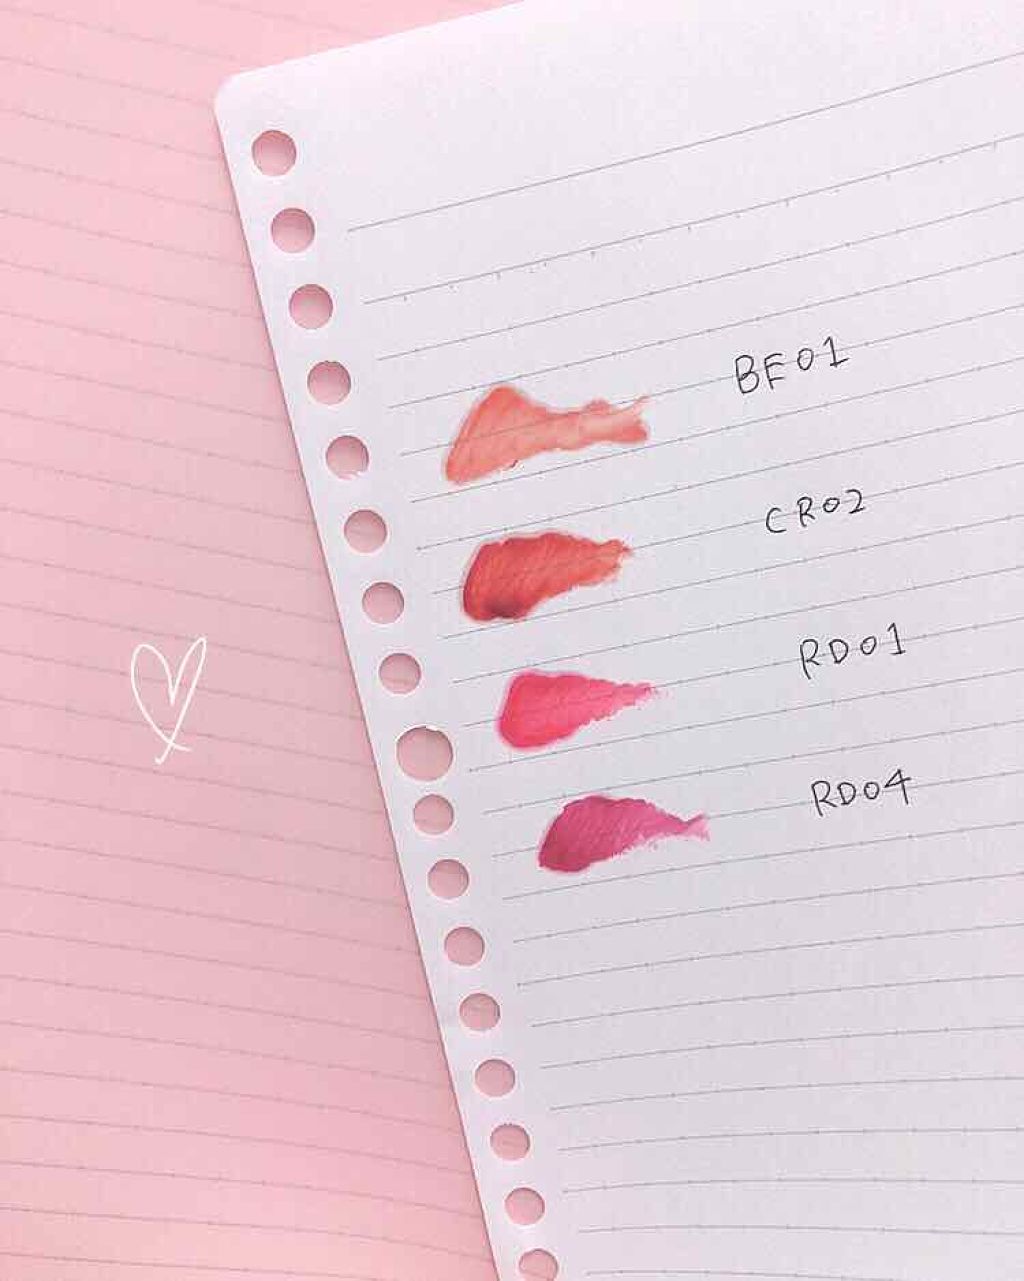 BE01
CR02
RD01
RD04